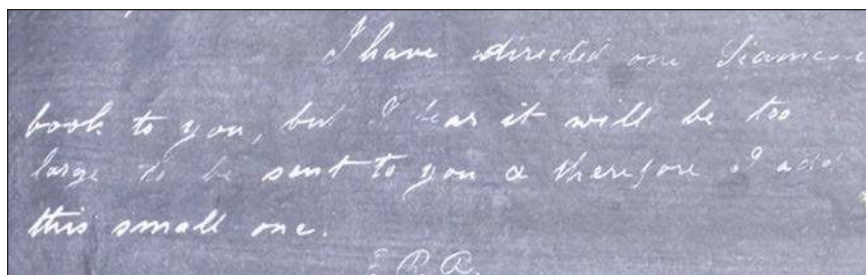 I have directed one Siamese
book to you, but I fear it will be too
large to be sent to you & therefore I add
this small one.